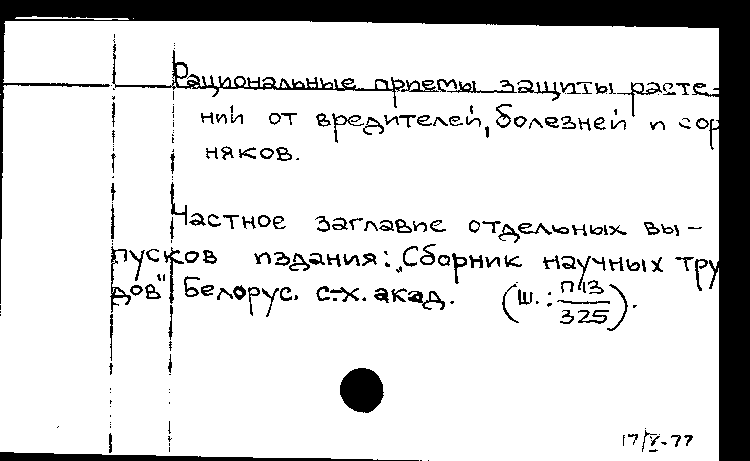 Рациональные приемы защиты расте=
ний от вредителей, болезней и сор
няков.
Частное заглавие отдельных вы-
пусков издания: „Сборник научных тру
дов" Белорус. с.-х. акад. (Ш.: П13/325).
17/V-77